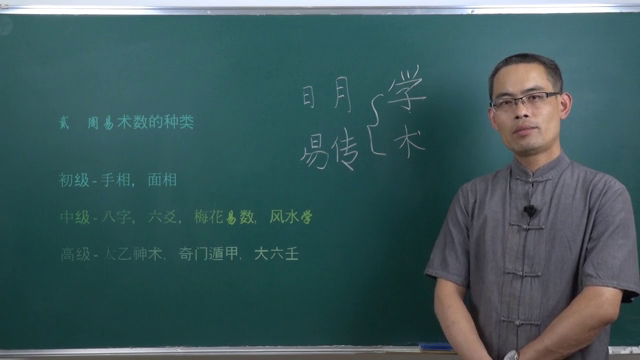 贰 周易术数的种类
初级-手相，面相
中级-八字，六爻，梅花易数，风水学
高级-太乙神术，奇门遁甲，大六壬
日月 学
易传 术